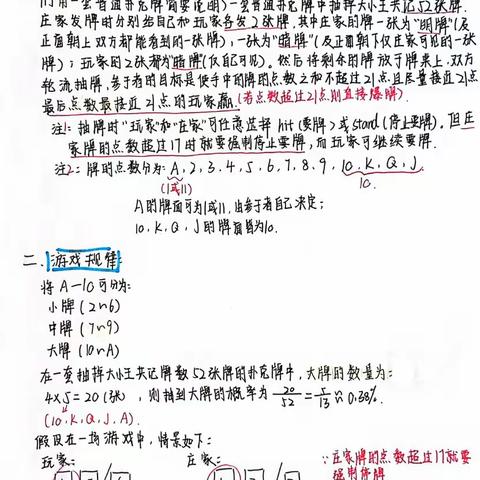 们用一套普通扑克牌简要说明)一套普通扑克牌中抽掉大小王共记52张牌.
庄家发牌时分别给自己和玩家各发2张牌,其中庄家的牌一张为"明牌"(及
正面朝上双方都能看到的一张牌),一张为"暗牌"(及正面朝下仅庄家可见的一张
牌);玩家的2张都为"暗牌"(仅自己可见)。然后将剩余的牌放于牌桌上,双方
轮流抽牌,参于者的目标是使手中的牌的点数之和不超过21点且尽量接近21点
最后点数最接近21点的玩家赢.(若点数超过21点则直接爆牌)
注1:抽牌时"玩家"和"庄家"可任意选择 hit(要牌)或stand(停止要牌).但庄
家牌的点数超过17时就要强制停止要牌,而玩家可继续要牌.
注2:牌的点数分为:A,2,3,4,5,6,7,8,9,10,K,Q,J
(1或11) 10.
A的牌面可为1或11,由参于者自己决定;
10,K,Q,J的牌面皆为10.
二.游戏规律:
将A-10可分为:
小牌(2~6)
中牌(7~9)
大牌(10~A)
在一套抽掉大小王共记牌数52张牌的扑克牌中,大牌的数量为:
4×5=20(张),则抽到大牌的概率为 20/52=5/13≈0.38%.
(10,K,Q,J,A).
假设在一场游戏中,情景如下:
玩家: 庄家: ∵庄家牌的点数超过17就要
强制停牌